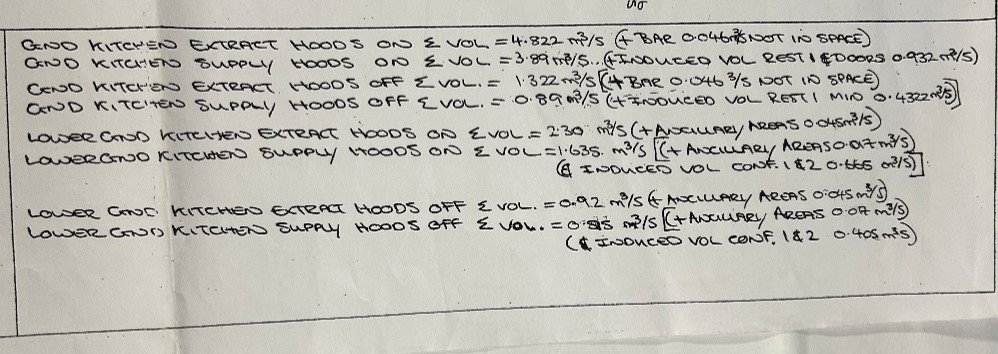 GND KITCHEN EXTRACT HOODS ON Σ VOL = 4.822 m³/S (+ BAR 0.046m³/S NOT IN SPACE)
GND KITCHEN SUPPLY HOODS ON Σ VOL = 3.89 m³/S.. (+INDUCED VOL REST 1 & DOORS 0.932 m³/S)
GND KITCHEN EXTRACT HOODS OFF Σ VOL. = 1.322 m³/S [(+ BAR 0.046 ³/S NOT IN SPACE)
GND KITCHEN SUPPLY HOODS OFF Σ VOL. = 0.89 m³/S (+ INDUCED VOL REST 1 MIN 0.4322 m³/S)]
LOWER GND KITCHEN EXTRACT HOODS ON Σ VOL = 2.30 m³/S (+ ANCILLARY AREAS 0.045m³/S)
LOWER GND KITCHEN SUPPLY HOODS ON Σ VOL = 1.635. m³/S [(+ ANCILLARY AREAS 0.017 m³/S)
(& INDUCED VOL CONF. 1 & 2 0.665 m³/S)]
LOWER GND KITCHEN EXTRACT HOODS OFF Σ VOL. = 0.92 m³/S (+ ANCILLARY AREAS 0.045 m³/S)
LOWER GND KITCHEN SUPPLY HOODS OFF Σ VOL. = m³/S [(+ ANCILLARY AREAS 0.07 m³/S)
(& INDUCED VOL CONF. 1 & 2 0.405 m³S)